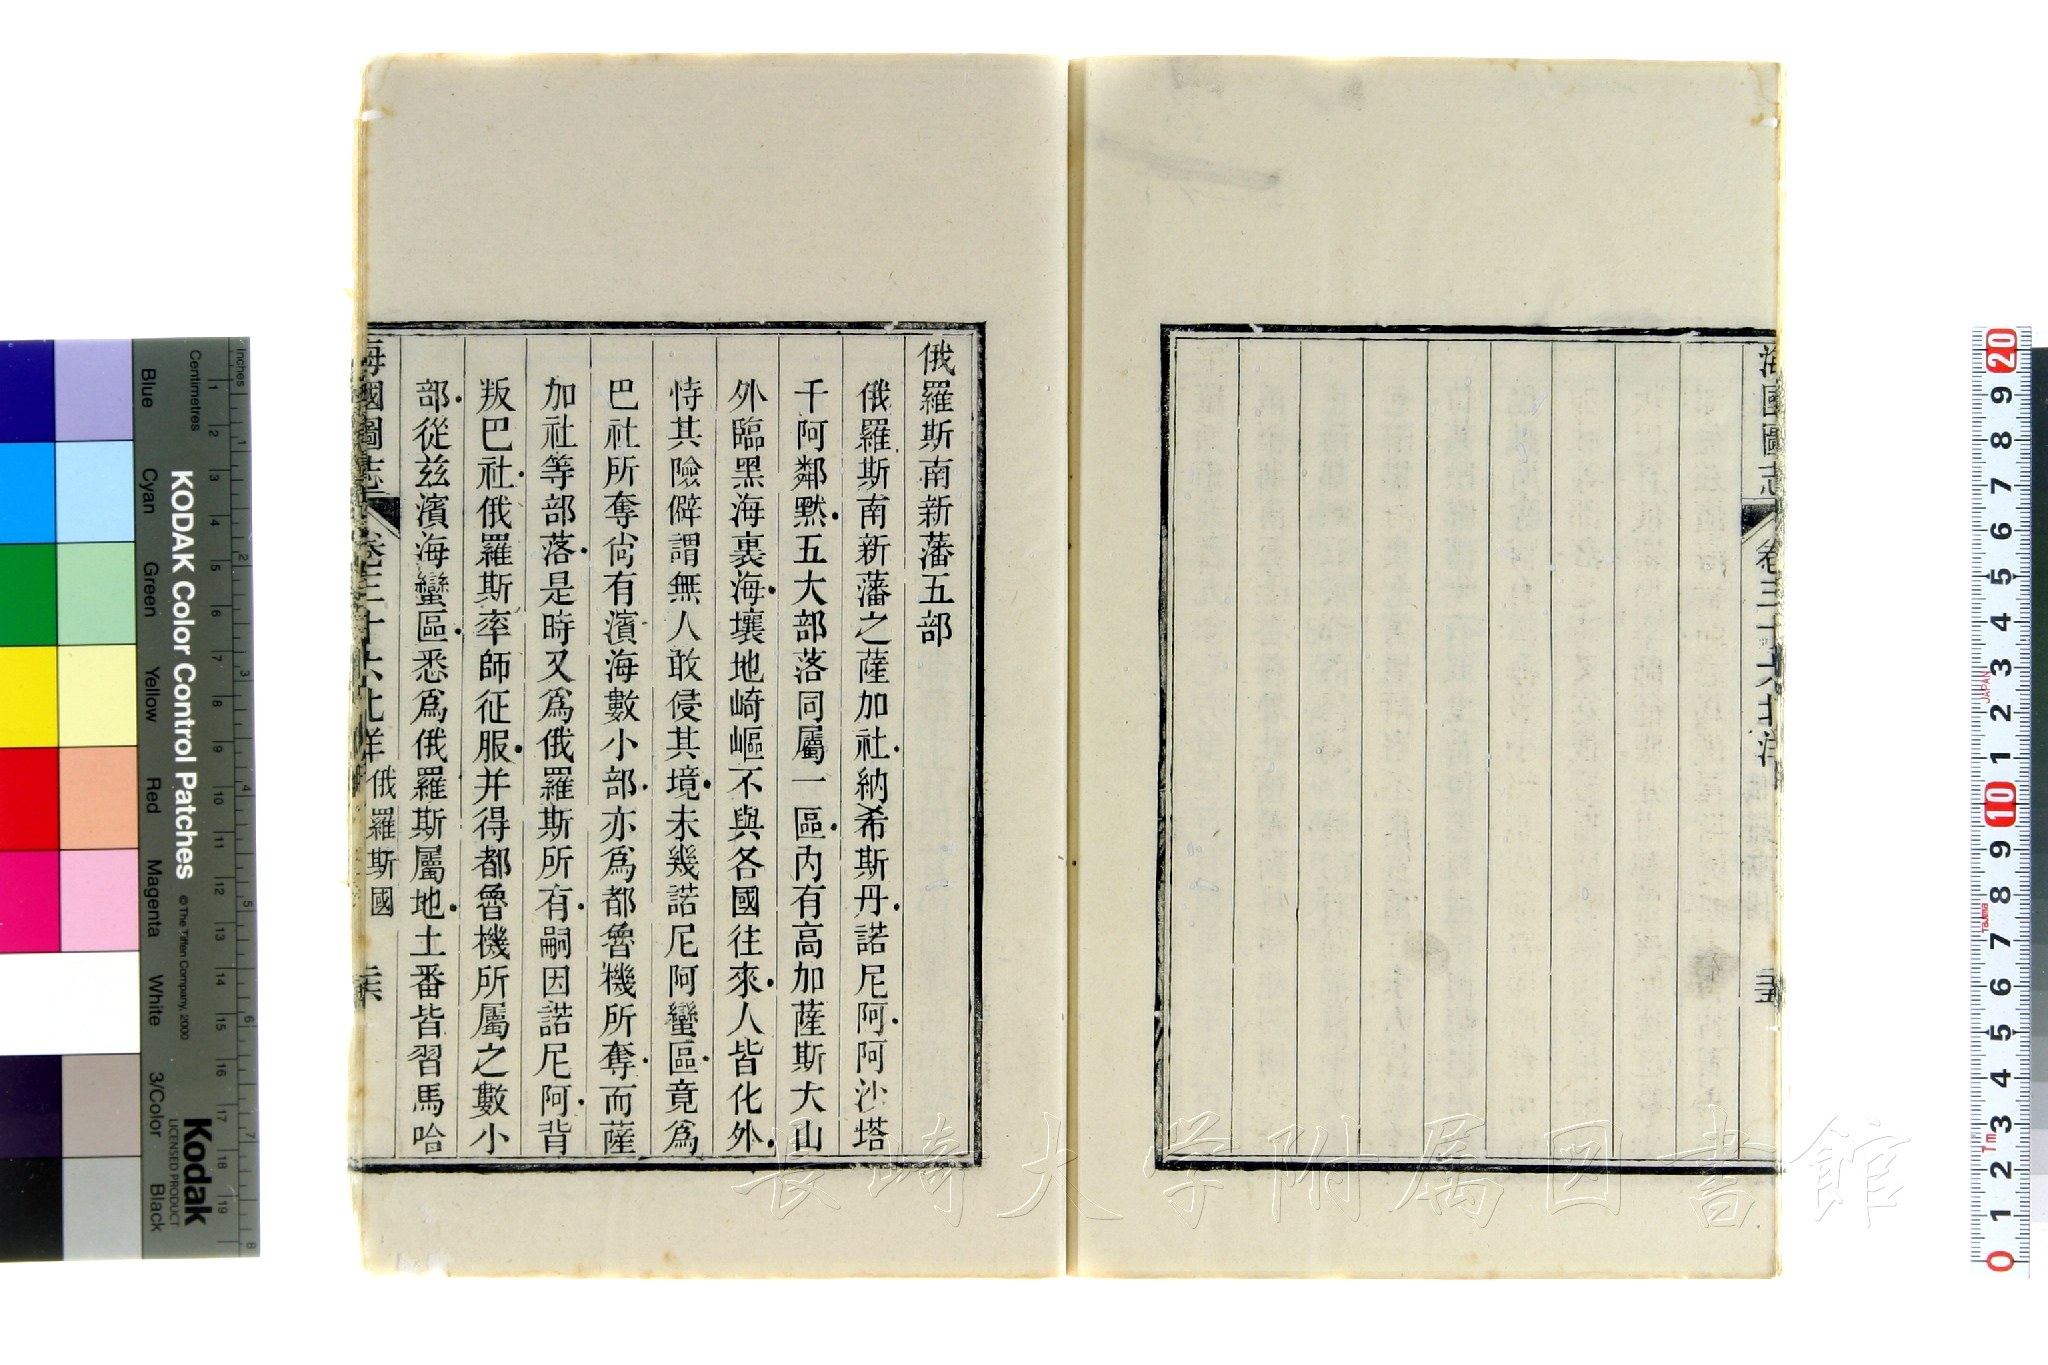 海國圖志
卷三十六北洋
俄羅斯南新藩五部
俄羅斯南新藩之薩加社納希斯丹諾尼阿阿沙塔
千阿鄰黙五大部落同屬一區內有高加薩斯大山
外臨黑海裏海壤地崎嶇不與各國往來人皆化外
恃其險僻謂無人敢侵其境未幾諾尼阿蠻區竟爲
巴社所奪尙有濱海數小部亦爲都魯機所奪而薩
加社等部落是時又爲俄羅斯所有嗣因諾尼阿背
叛巴社俄羅斯率師征服并得都魯機所屬之數小
部從玆濱海蠻區悉爲俄羅斯屬地土番皆習馬哈
海國圖志
卷三十六北洋
俄羅斯國
長崎大学附属図書館
KODAK Color Control Patches
© The Tiffen Company, 2000
Kodak
LICENSED PRODUCT
Inches
Centimetres
Blue
Cyan
Green
Yellow
Red
Magenta
White
3/Color
Black
1 2 3 4 5 6 7 8
1 2 3 4 5 6 7 8 9 10 11 12 13 14 15 16 17 18 19
20 9 8 7 6 5 4 3 2 1 10 9 8 7 6 5 4 3 2 1 0
JAPAN